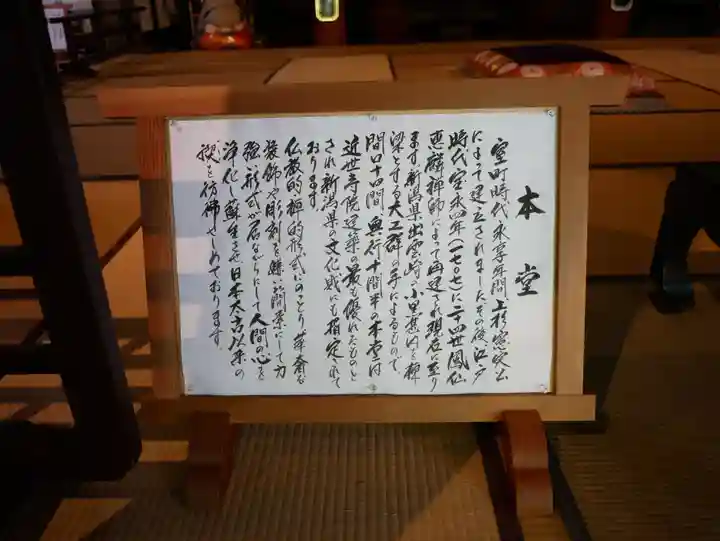 本堂
室町時代永享年間、上杉憲実公
によって建立されました。その後江戸
時代宝永四年(一七〇七)に二十四世鳳仙
恵麟禅師によって再建され現在に至り
ます。新潟県出雲崎の小黒甚内を棟
梁とする大工群の手によるもので、
間口十四間、奥行十間半の本堂は
近世寺院建築の最も優れたものと
され新潟県の文化財にも指定されて
おります。
仏教的・禅的形式にのっとり華奢な
装飾や彫刻を
強い形式が居ながらにして人間の心を
浄化し蘇生させ日本太古以来の
禊を彷彿せしめております。